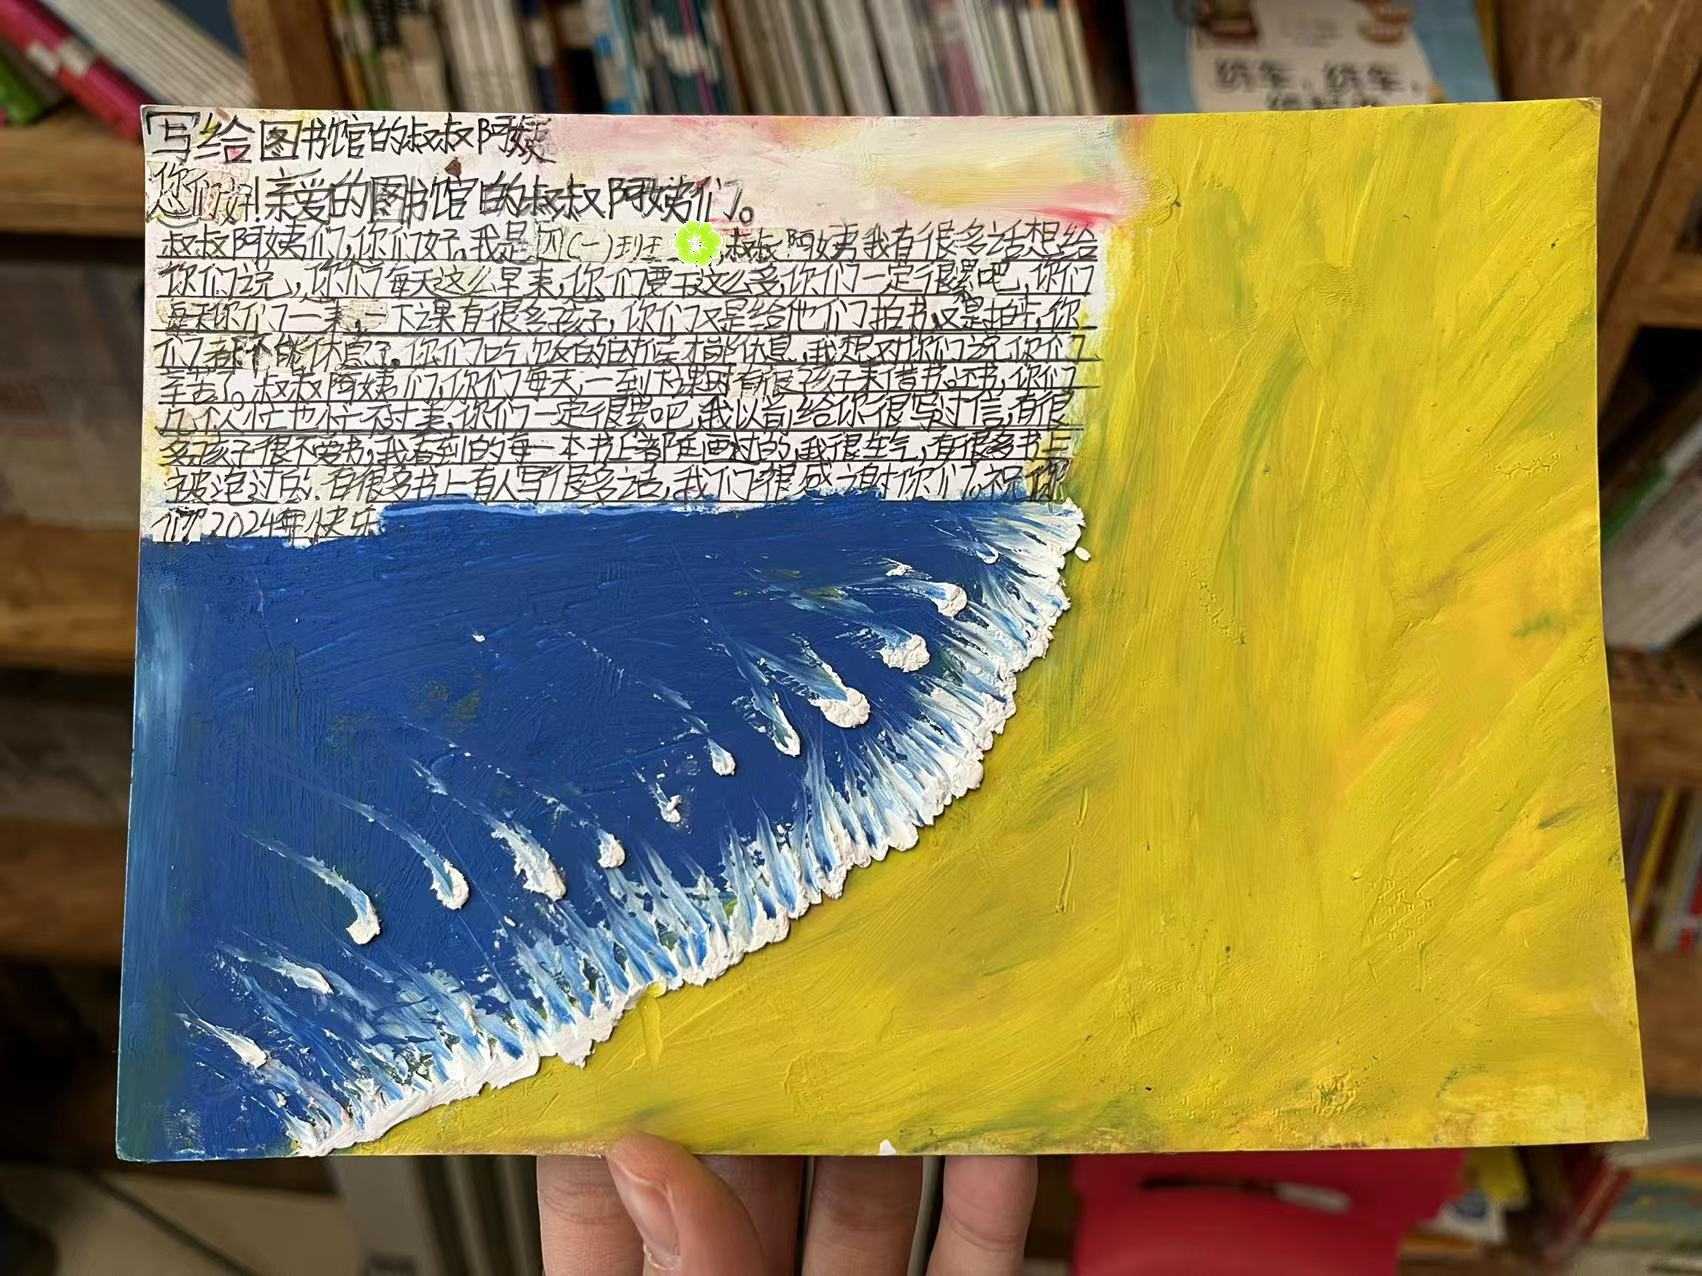 纺车,纺车,
写给图书馆的叔叔阿姨
您们好!亲爱的图书馆的叔叔阿姨们。
叔叔阿姨们,你们好。我是四(一)班 ,叔叔阿姨我有很多话想给
你们说,你们每天这么早来,你们要干这么多,你们一定很累吧,你们
每天你们一来,一下课有很多孩子,你们又是给他们拍书又是拍卡,你
们都不能休息了。你们吃饭的时候才能休息,我想对你们说你们
辛苦了。叔叔阿姨们,你们每天一到下课时有很多孩子来借书。还书,你们
几个人忙也忙不过来,你们一定很累吧,我以前给你很写过信,有很
多孩子很不爱书,我看到的每一本书上都是画过的,我很生气,有很多书上
被泡过的,有很多书上有人写很多话,我们很感谢你们。祝你
们2024年快乐